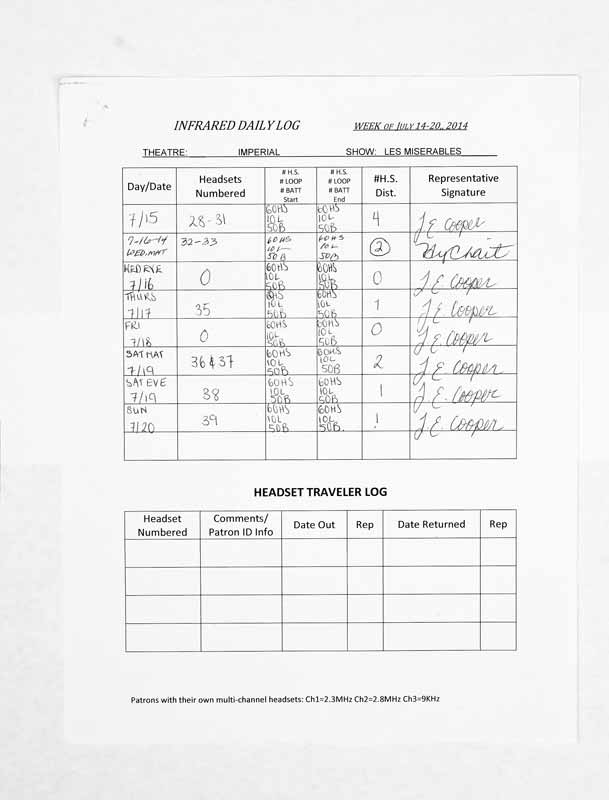 INFRARED DAILY LOG WEEK OF JULY 14-20, 2014
THEATRE: IMPERIAL SHOW: LES MISERABLES
Day/Date Headsets Numbered # H.S. # LOOP # BATT Start # H.S. # LOOP # BATT End #H.S. Dist. Representative Signature
7/15 28-31 60HS 10L 50B 60HS 10L 50B 4 J E Cooper
7-16-14 WED. MAT 32-33 60HS 10L 50B 60HS 10L 50B 2
WED EVE 7/16 0 60HS 10L 50B 60HS 10L 50B 0 J E Cooper
THURS 7/17 35 10L 50B 60HS 10L 50B 1 J E Cooper
FRI 7/18 0 60HS 10L 50B 60HS 10L 50B 0 J E Cooper
SAT MAT 7/19 36 & 37 60HS 10L 50B 60HS 10L 50B 2 J E. Cooper
SAT EVE 7/19 38 60HS 10L 50B 60HS 10L 50B 1 J E. Cooper
SUN 7/20 39 60HS 10L 50B 60HS 10L 50B. 1 J E. Cooper
HEADSET TRAVELER LOG
Headset Numbered Comments/ Patron ID Info Date Out Rep Date Returned Rep
Patrons with their own multi-channel headsets: Ch1=2.3MHz Ch2=2.8MHz Ch3=9KHz